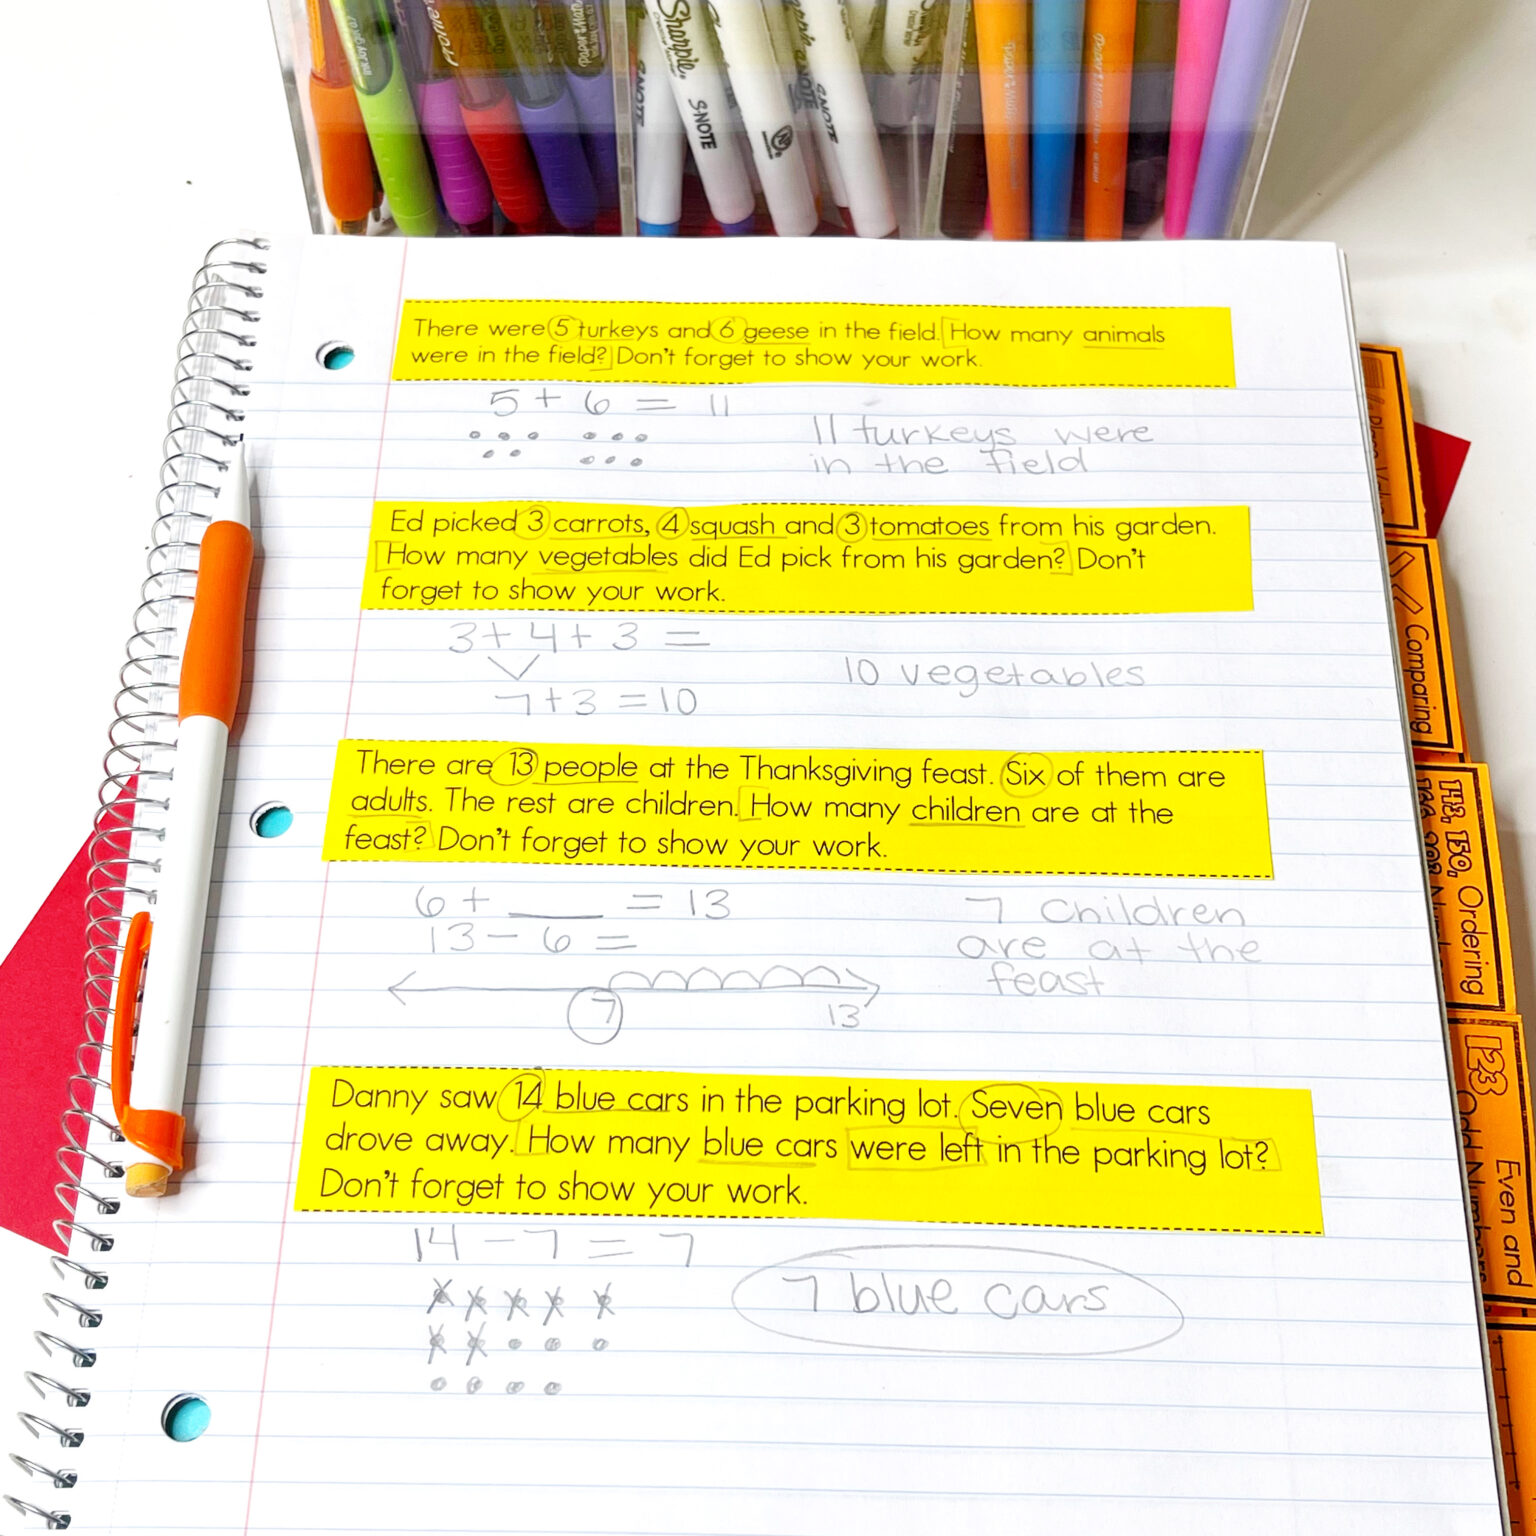 Sharpie
S·NOTE
S·NOTE
S·NOTE
There were 5 turkeys and 6 geese in the field. How many animals
were in the field? Don't forget to show your work.
5 + 6 = 11
11 turkeys were
in the field
Ed picked 3 carrots, 4 squash and 3 tomatoes from his garden.
How many vegetables did Ed pick from his garden? Don't
forget to show your work.
3 + 4 + 3 =
7 + 3 = 10
10 vegetables
There are 13 people at the Thanksgiving feast. Six of them are
adults. The rest are children. How many children are at the
feast? Don't forget to show your work.
6 + ___ = 13
13 - 6 =
7 13
7 children
are at the
feast
Danny saw 14 blue cars in the parking lot. Seven blue cars
drove away. How many blue cars were left in the parking lot?
Don't forget to show your work.
14 - 7 = 7
7 blue cars
Place Value
Comparing
Ordering
123
Even and
Odd Numbers